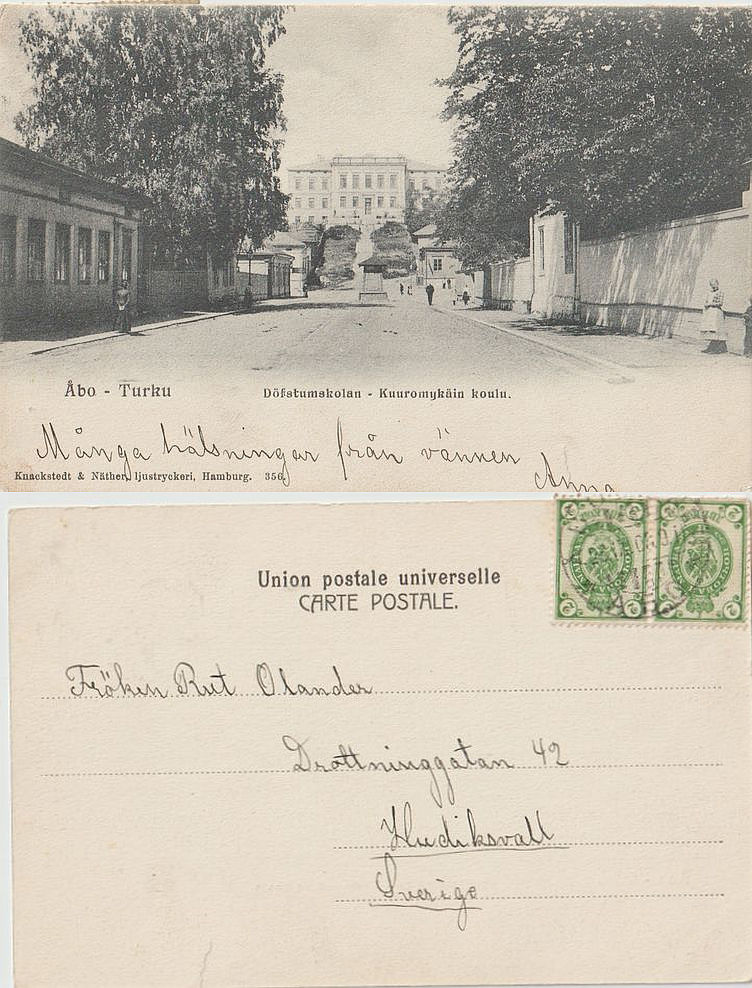 Åbo - Turku
Döfstumskolan - Kuuromykäin koulu.
Många hälsningar från vännen
Anna
Knackstedt & Näther, ljustryckeri, Hamburg. 356.
Union postale universelle
CARTE POSTALE.
Fröken Rut Olander
Drottninggatan 42
Hudiksvall
Sverige